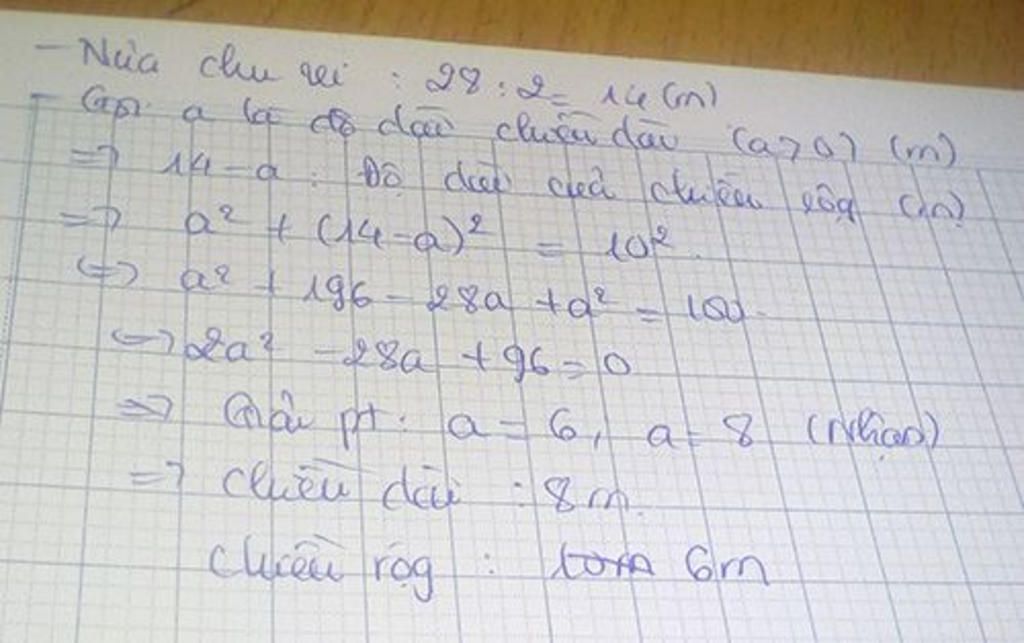 - Nửa chu vi : 28 : 2 = 14 (m)
- Gọi a là độ dài chiều dài (a > 0) (m)
=> 14 - a : Độ dài của chiều rộg (m)
=> a² + (14 - a)² = 10².
<=> a² + 196 - 28a + a² = 100.
<=> 2a² - 28a + 96 = 0
=> Giải pt : a = 6, a = 8 (Nhận)
=> chiều dài : 8m.
chiều rộg : 6m